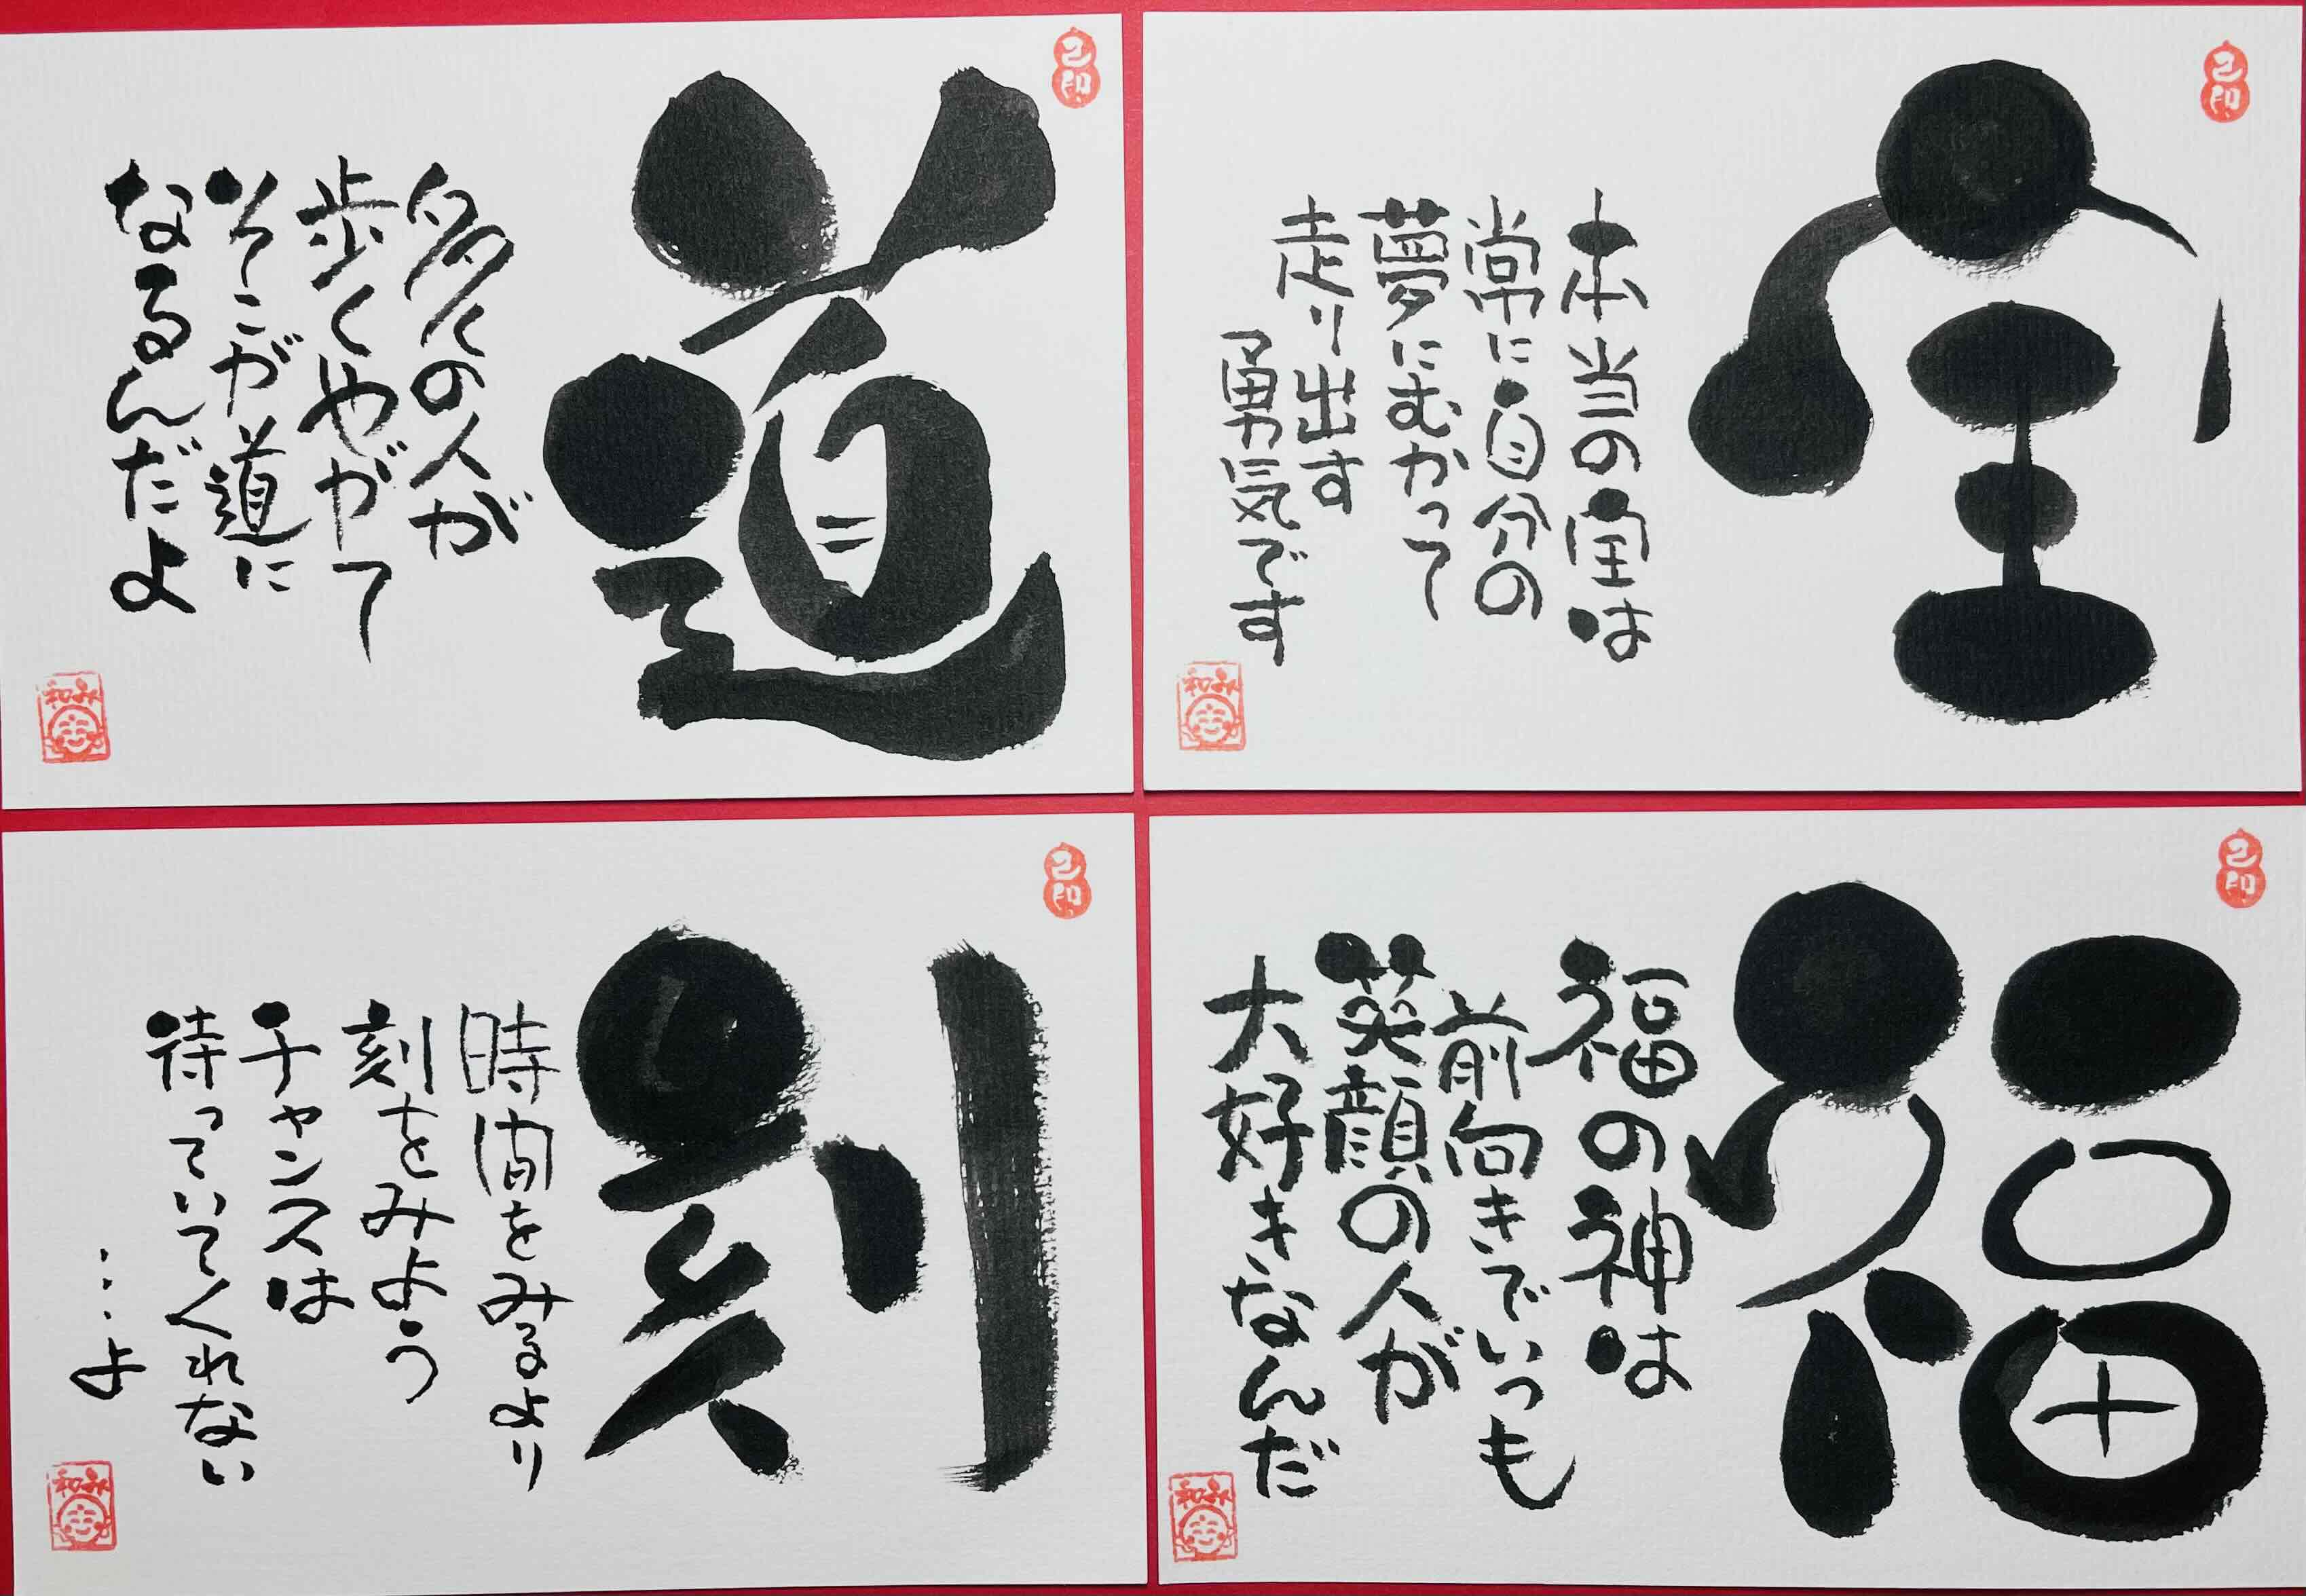 道
多くの人が
歩くやがて
そこが道に
なるんだよ
宝
本当の宝は
常に自分の
夢にむかって
走り出す
勇気です
刻
時間をみるより
刻をみよう
チャンスは
待っていてくれない
…よ
福
福の神は
前向きでいつも
笑顔の人が
大好きなんだ